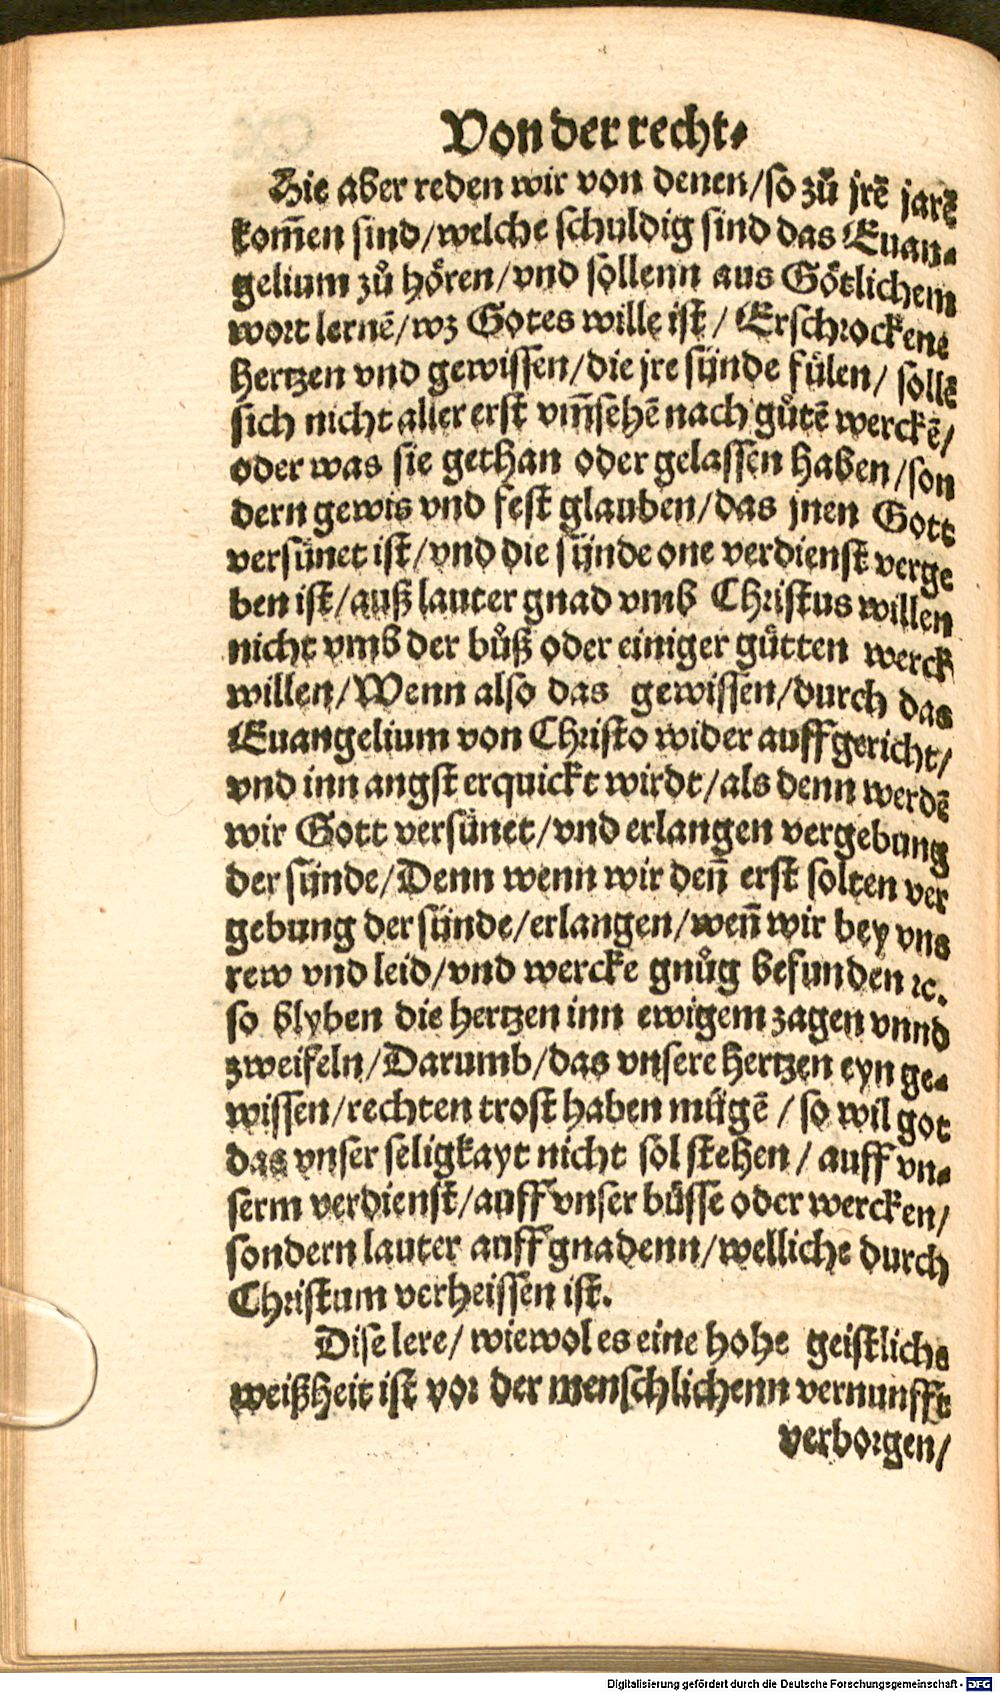 Von der recht⸗
Hie aber reden wir von denen/so zů jrē jarē
kom̄en sind/welche schuldig sind das Euan⸗
gelium zů hören/vnd sollenn aus Götlichem
wort lernē/wz Gotes wille ist/ Erschrockene
hertzen vnd gewissen/die jre sünde fülen/ sollē
sich nicht aller erst vm̄sehē nach gůtē werckē/
oder was sie gethan oder gelassen haben/son
dern gewis vnd fest glauben/das jnen Gott
versünet ist/vnd die sünde one verdienst verge
ben ist/auß lauter gnad vmb Christus willen
nicht vmb der bůß oder einiger gůtten werck
willen/Wenn also das gewissen/durch das
Euangelium von Christo wider auffgericht/
vnd inn angst erquickt wirdt/als denn werdē
wir Gott versünet/vnd erlangen vergebung
der sünde/Denn wenn wir den̄ erst solten ver
gebung der sünde/erlangen/wen̄ wir bey vns
rew vnd leid/vnd wercke gnůg befunden ꝛc.
so blyben die hertzen inn ewigem zagen vnnd
zweifeln/Darumb/das vnsere hertzen eyn ge⸗
wissen/rechten trost haben mügē/so wil got
das vnser seligkayt nicht sol stehen/ auff vn⸗
serm verdienst/auff vnser büsse oder wercken/
sondern lauter auff gnadenn/welliche durch
Christum verheissen ist.
Dise lere/ wiewol es eine hohe geistliche
weißheit ist vor der menschlichenn vernunfft
verborgen/
Digitalisierung gefördert durch die Deutsche Forschungsgemeinschaft - DFG